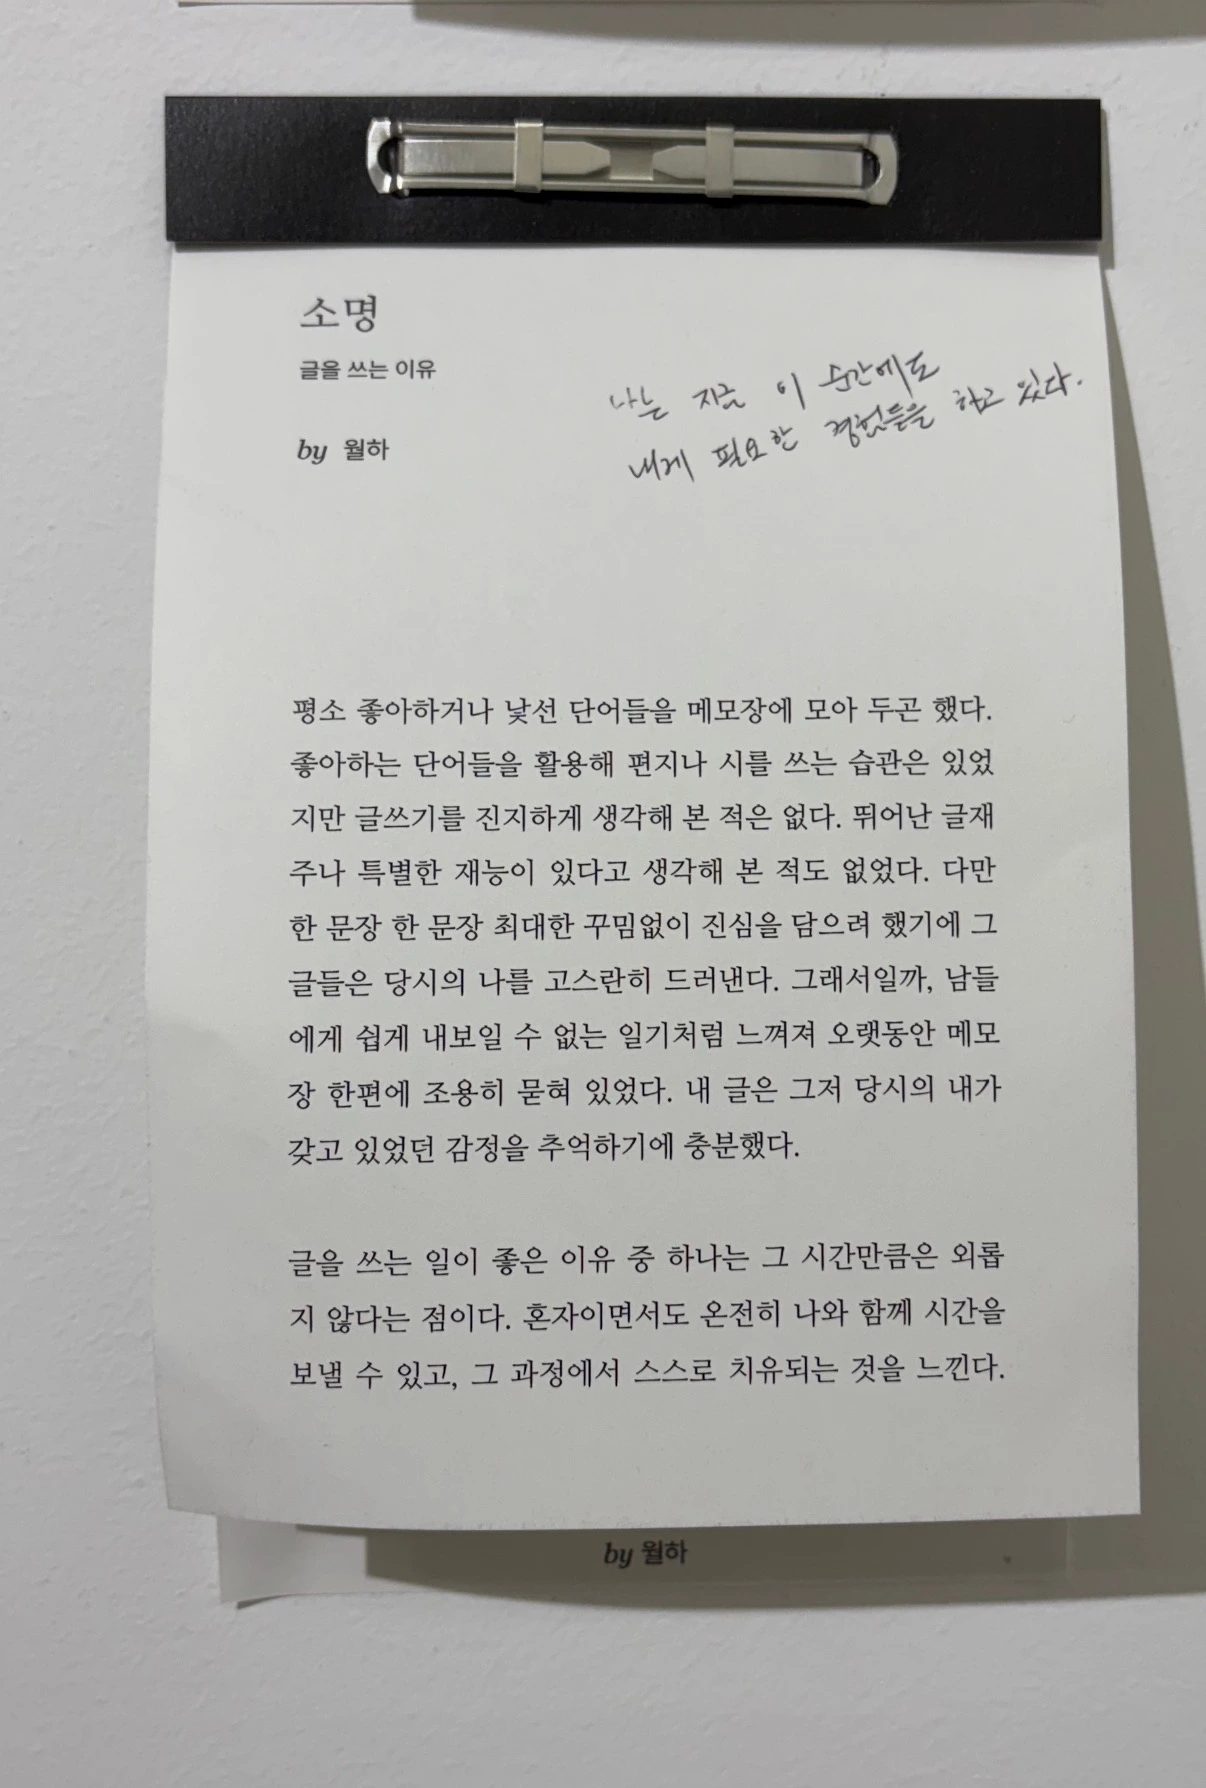 소명
글을 쓰는 이유
by 월하
나는 지금 이 순간에도
내게 필요한 경험들을 하고 있다.
평소 좋아하거나 낯선 단어들을 메모장에 모아 두곤 했다.
좋아하는 단어들을 활용해 편지나 시를 쓰는 습관은 있었
지만 글쓰기를 진지하게 생각해 본 적은 없다. 뛰어난 글재
주나 특별한 재능이 있다고 생각해 본 적도 없었다. 다만
한 문장 한 문장 최대한 꾸밈없이 진심을 담으려 했기에 그
글들은 당시의 나를 고스란히 드러낸다. 그래서일까, 남들
에게 쉽게 내보일 수 없는 일기처럼 느껴져 오랫동안 메모
장 한편에 조용히 묻혀 있었다. 내 글은 그저 당시의 내가
갖고 있었던 감정을 추억하기에 충분했다.
글을 쓰는 일이 좋은 이유 중 하나는 그 시간만큼은 외롭
지 않다는 점이다. 혼자이면서도 온전히 나와 함께 시간을
보낼 수 있고, 그 과정에서 스스로 치유되는 것을 느낀다.
by 월하